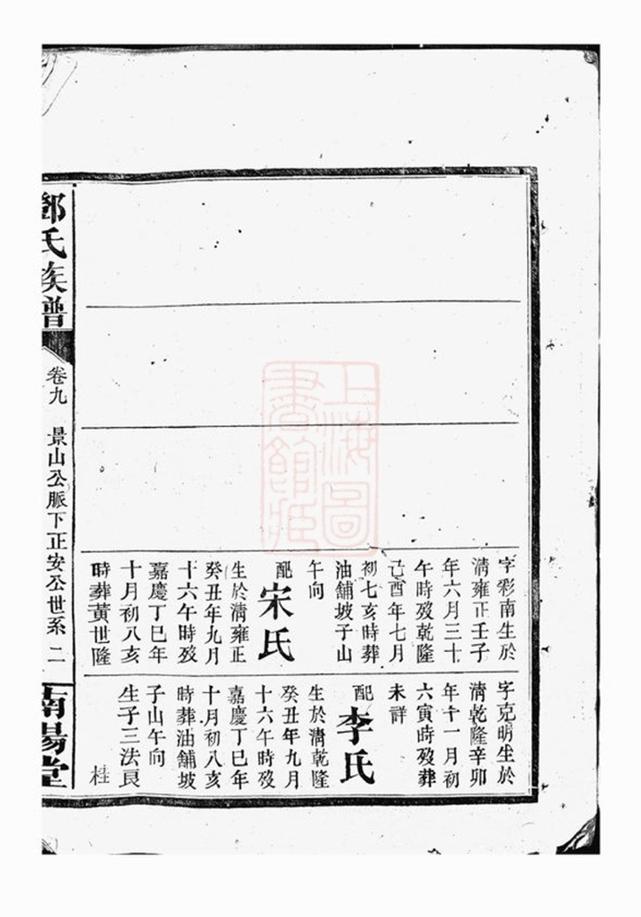 字彩南生於
清雍正壬子
年六月三十
午時歿乾隆
己酉年七月
初七亥時葬
油舖坡子山
午向
配宋氏
生於清雍正
癸丑年九月
十六午時歿
嘉慶丁巳年
十月初八亥
時葬黃世隆
字克明生於
清乾隆辛卯
年十一月初
六寅時歿葬
未詳
配李氏
生於清乾隆
癸丑年九月
十六午時歿
嘉慶丁巳年
十月初八亥
時葬油舖坡
子山午向
生子三法良
桂
鄧氏族譜
卷九 景山公脈下正安公世系 二
南陽堂
上海圖
書館藏